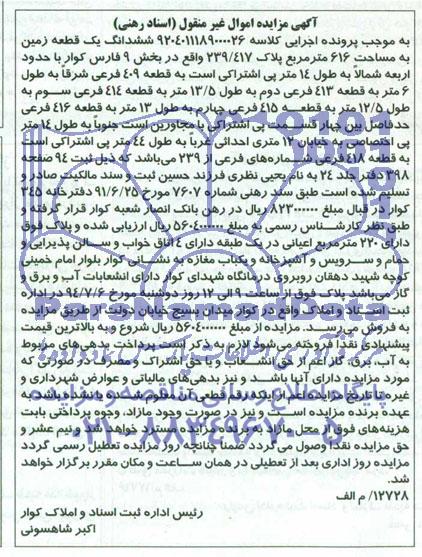 آگهی مزایده اموال غیر منقول (اسناد رهنی)
به موجب پرونده اجرایی کلاسه ۹۲۰۴۰۱۱۱۸۹۰۰۰۰۲۶ ششدانگ یک قطعه زمین
به مساحت ۶۱۶ مترمربع پلاک ۲۳۹/۴۱۷ واقع در بخش ۹ فارس کوار با حدود
اربعه شمالاً به طول ۱۴ متر پی اشتراکی است به قطعه ۴۰۹ فرعی شرقاً به طول
۶ متر به قطعه ۴۱۳ فرعی دوم به طول ۱۳/۵ متر به قطعه ۴۱۴ فرعی سوم به
طول ۱۲/۵ متر به قطعه ۴۱۵ فرعی چهارم به طول ۱۳ متر به قطعه ۴۱۶ فرعی
حدفاصل بین چهار قسمت پی اشتراکی با مجاورین است جنوباً به طول ۱۴ متر
پی اختصاصی به خیابان ۱۲ متری احداثی غرباً به طول ۴۴ متر پی اشتراکی است
به قطعه ۴۱۸ فرعی شماره‌های فرعی از ۲۳۹ می‌باشد که ذیل ثبت ۹۴ صفحه
۳۹۸ دفتر جلد ۲۴ به نام یحیی نظری فرزند حسین ثبت و سند مالکیت صادر و
تسلیم شده است طبق سند رهنی شماره ۷۶۰۷ مورخ ۹۱/۶/۲۵ دفترخانه ۳۴۵
کوار در قبال مبلغ ۸۲۳۰۰۰۰۰۰ ریال در رهن بانک انصار شعبه کوار قرار گرفته و
طبق نظر کارشناس رسمی به مبلغ ۵۶۰۴۰۰۰۰۰۰ ریال ارزیابی شده و پلاک فوق
دارای ۲۲۰ مترمربع اعیانی در یک طبقه دارای ۴ اتاق خواب و سالن پذیرایی و
حمام و سرویس و آشپزخانه و یکباب مغازه به نشانی کوار بلوار امام خمینی
کوچه شهید دهقان روبروی درمانگاه شهدای کوار دارای انشعابات آب و برق و
گاز می‌باشد پلاک فوق از ساعت ۹ الی ۱۲ روز دوشنبه مورخ ۹۴/۷/۶ در اداره
ثبت اسناد و املاک واقع در کوار میدان بسیج خیابان دولت از طریق مزایده
به فروش می‌رسد. مزایده از مبلغ ۵۶۰۴۰۰۰۰۰۰ ریال شروع و به بالاترین قیمت
پیشنهادی نقداً فروخته می‌شود لازم به ذکر است پرداخت بدهی‌های مربوط
به آب، برق، گاز اعم از حق انشعاب و یا حق اشتراک و مصرف در صورتی که
مورد مزایده دارای آنها باشد و نیز بدهی‌های مالیاتی و عوارض شهرداری و
غیره تا تاریخ مزایده اعم از اینکه رقم قطعی آن معلوم شده یا نشده باشد به
عهده برنده مزایده است و نیز در صورت وجود مازاد، وجوه پرداختی بابت
هزینه‌های فوق از محل مازاد به برنده مزایده مسترد خواهد شد و نیم عشر و
حق مزایده نقداً وصول می‌گردد ضمناً چنانچه روز مزایده تعطیل رسمی گردد
مزایده روز اداری بعد از تعطیلی در همان ساعت و مکان مقرر برگزار خواهد
شد.
۱۲۷۲۸/ م الف
رئیس اداره ثبت اسناد و املاک کوار
اکبر شاهسونی
۰۲۱-۸۸۳۴۹۶۷۰-۵